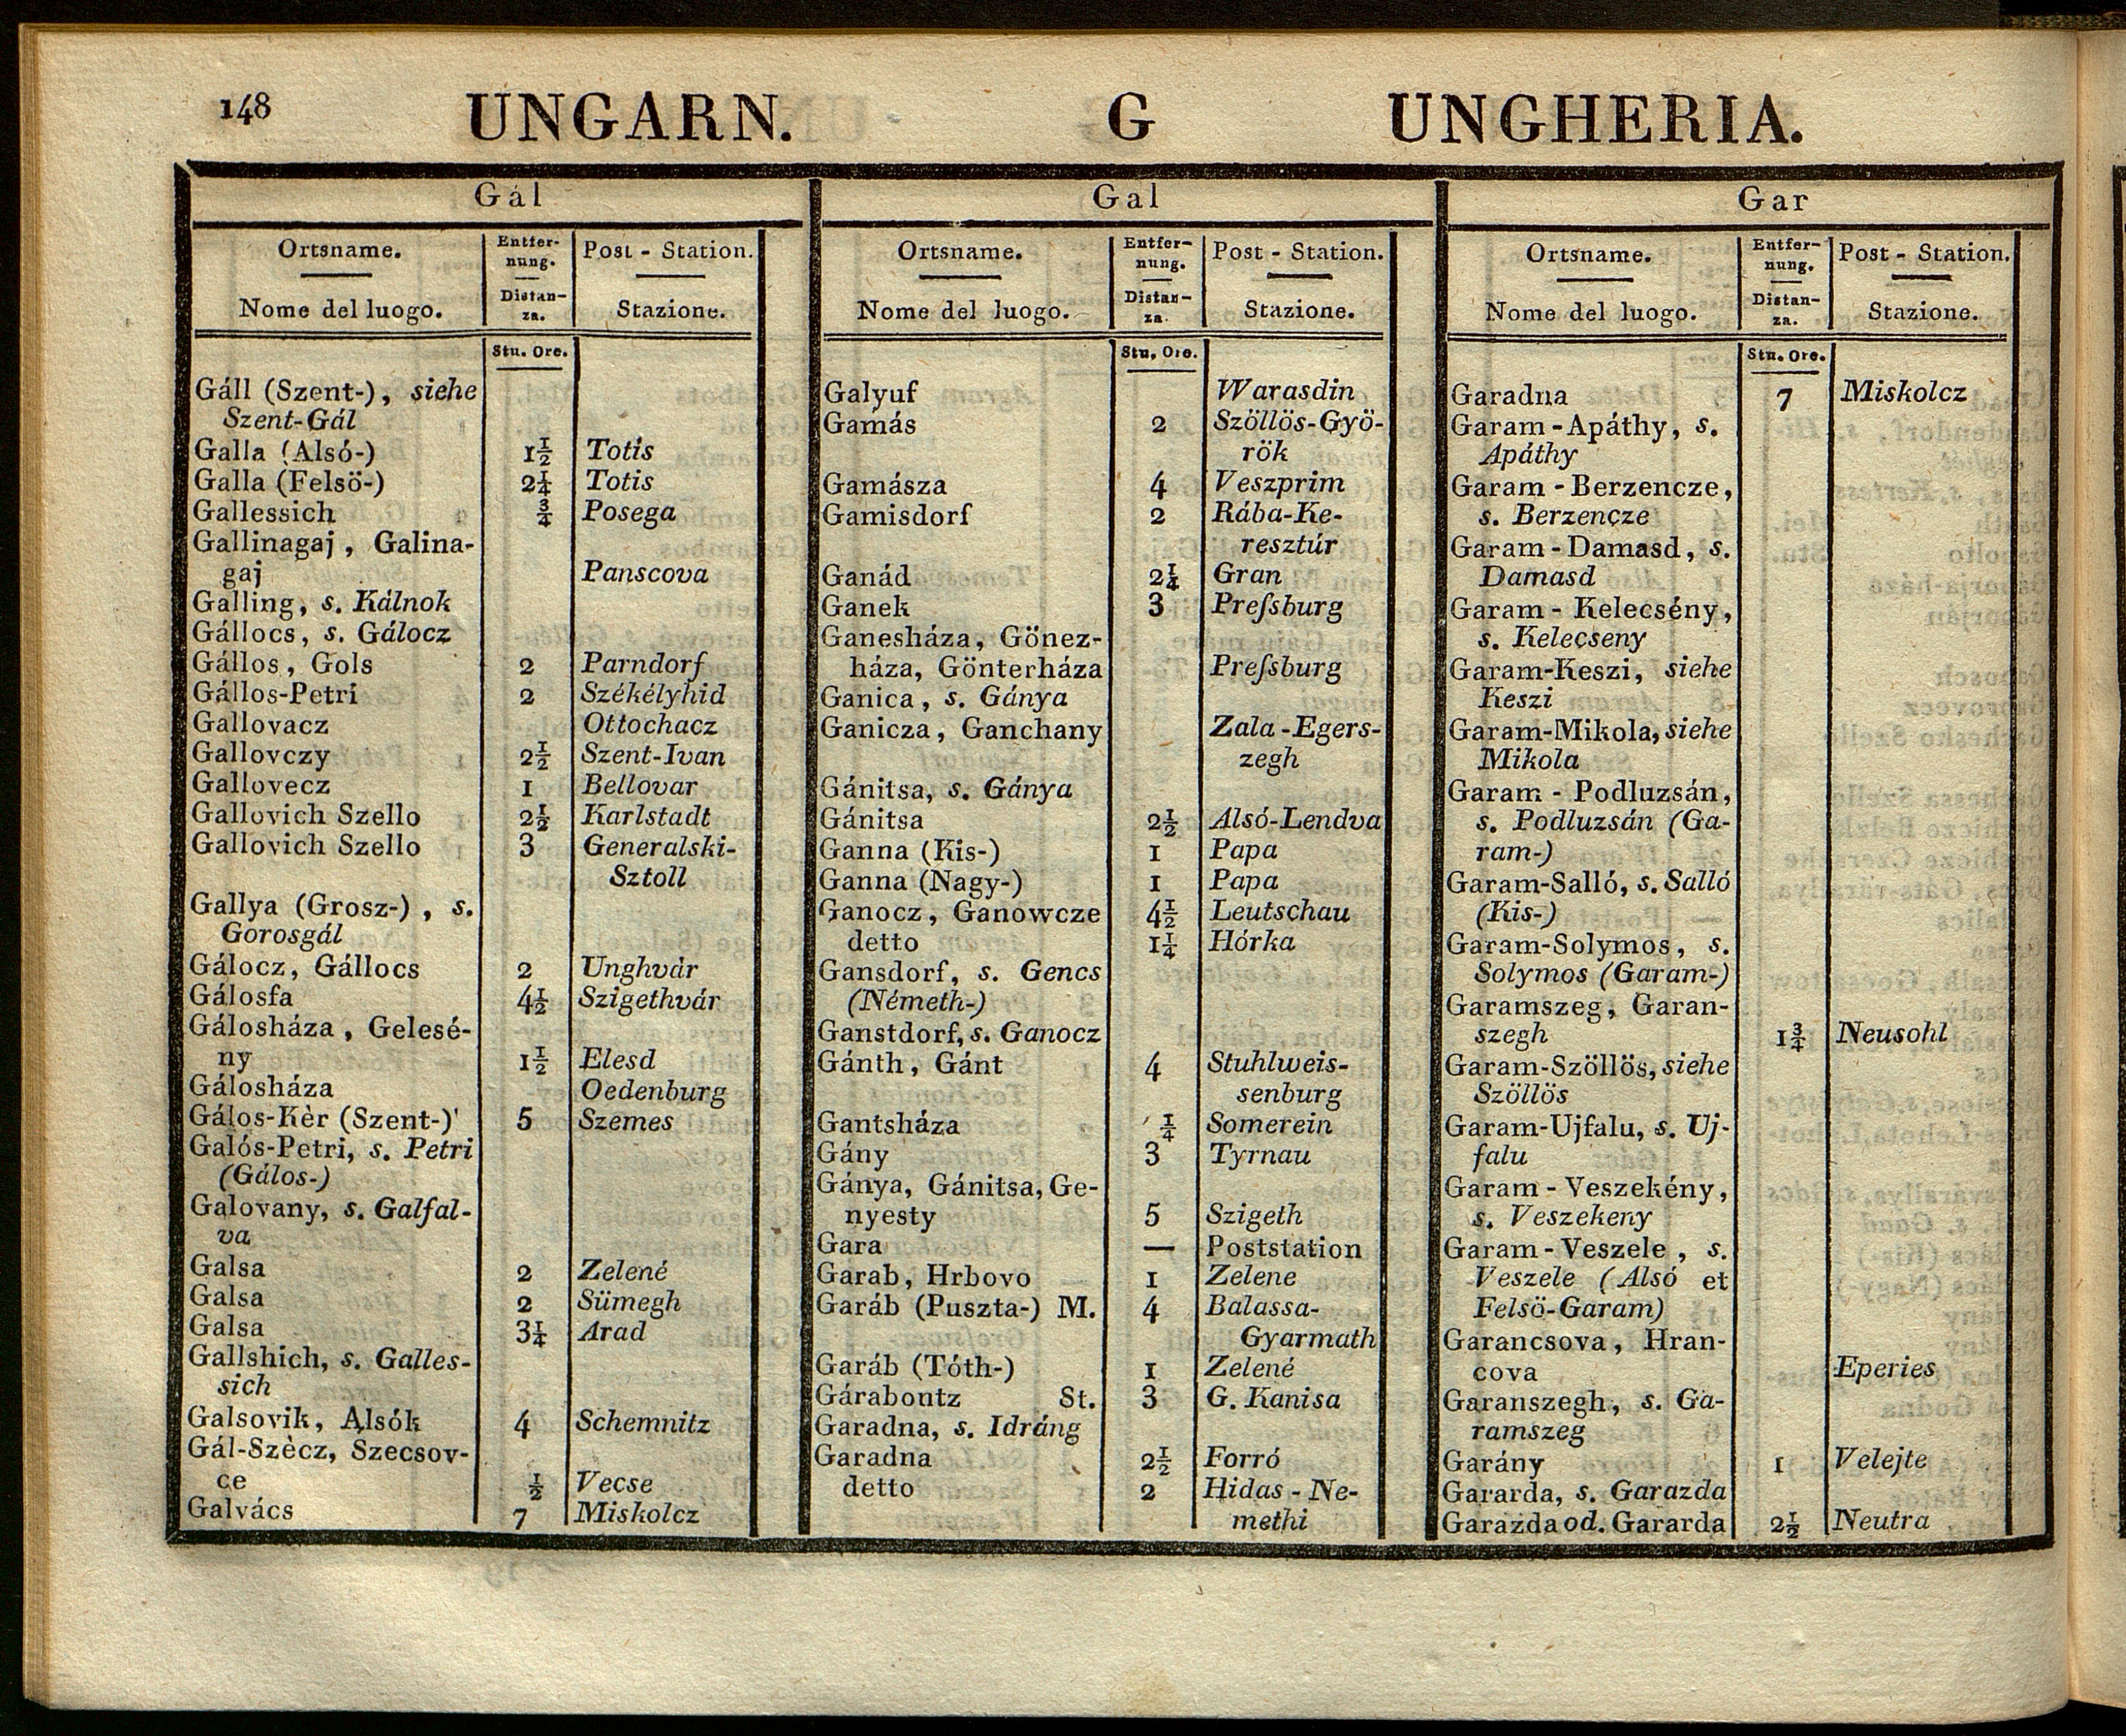 148 UNGARN. G UNGHERIA.
Gál
Ortsname. Entfernung. Post - Station.
Nome del luogo. Distanza. Stazione.
Stu. Ore.
Gáll (Szent-), siehe
Szent-Gál
Galla (Alsó-) 1½ Totis
Galla (Felsö-) 2¼ Totis
Gallessich ¾ Posega
Gallinagaj, Galina-
gaj Panscova
Galling, s. Kálnok
Gállocs, s. Gálocz
Gállos, Gols 2 Parndorf
Gállos-Petri 2 Székélyhid
Gallovacz Ottochacz
Gallovczy 2½ Szent-Ivan
Gallovecz 1 Bellovar
Gallovich Szello 2½ Karlstadt
Gallovich Szello 3 Generalski-
Sztoll
Gallya (Grosz-), s.
Gorosgál
Gálocz, Gállocs 2 Unghvár
Gálosfa 4½ Szigethvár
Gálosháza, Gelesé-
ny 1½ Elesd
Gálosháza Oedenburg
Gálos-Kèr (Szent-) 5 Szemes
Galós-Petri, s. Petri
(Gálos-)
Galovany, s. Galfal-
va
Galsa 2 Zelené
Galsa 2 Sümegh
Galsa 3¼ Arad
Gallshich, s. Galles-
sich
Galsovik, Alsók 4 Schemnitz
Gál-Szècz, Szecsov-
ce ½ Vecse
Galvács 7 Miskolcz
Gal
Ortsname. Entfer-
nung. Post - Station.
Nome del luogo. Distan-
za. Stazione.
Stu. Ore.
Galyuf Warasdin
Gamás 2 Szöllös-Gyö-
rök
Gamásza 4 Veszprim
Gamisdorf 2 Rába-Ke-
resztúr
Ganád 2¼ Gran
Ganek 3 Preſsburg
Ganesháza, Gönez-
háza, Gönterháza Preſsburg
Ganica, s. Gánya
Ganicza, Ganchany Zala-Egers-
zegh
Gánitsa, s. Gánya
Gánitsa 2½ Alsó-Lendva
Ganna (Kis-) 1 Papa
Ganna (Nagy-) 1 Papa
Ganocz, Ganowcze 4½ Leutschau
detto 1¼ Hórka
Gansdorf, s. Gencs
(Németh-)
Ganstdorf, s. Ganocz
Gánth, Gánt 4 Stuhlweis-
senburg
Gantsháza ¼ Somerein
Gány 3 Tyrnau
Gánya, Gánitsa, Ge-
nyesty 5 Szigeth
Gara — Poststation
Garab, Hrbovo 1 Zelene
Garáb (Puszta-) M. 4 Balassa-
Gyarmath
Garáb (Tóth-) 1 Zelené
Gárabontz St. 3 G. Kanisa
Garadna, s. Idráng
Garadna 2½ Forró
detto 2 Hidas-Ne-
methi
Gar
Ortsname. Entfer-
nung. Post - Station.
Nome del luogo. Distan-
za. Stazione.
Stu. Ore.
Garadna 7 Miskolcz
Garam-Apáthy, s.
Apáthy
Garam-Berzencze,
s. Berzencze
Garam-Damasd, s.
Damasd
Garam-Kelecsény,
s. Kelecseny
Garam-Keszi, siehe
Keszi
Garam-Mikola, siehe
Mikola
Garam-Podluzsán,
s. Podluzsán (Ga-
ram-)
Garam-Salló, s. Salló
(Kis-)
Garam-Solymos, s.
Solymos (Garam-)
Garamszeg, Garan-
szegh 1¾ Neusohl
Garam-Szöllös, siehe
Szöllös
Garam-Ujfalu, s. Uj-
falu
Garam-Veszekény,
s. Veszekeny
Garam-Veszele, s.
Veszele (Alsó et
Felsö-Garam)
Garancsova, Hran-
cova Eperies
Garanszegh, s. Ga-
ramszeg
Garány 1 Velejte
Gararda, s. Garazda
Garazda od. Gararda 2½ Neutra